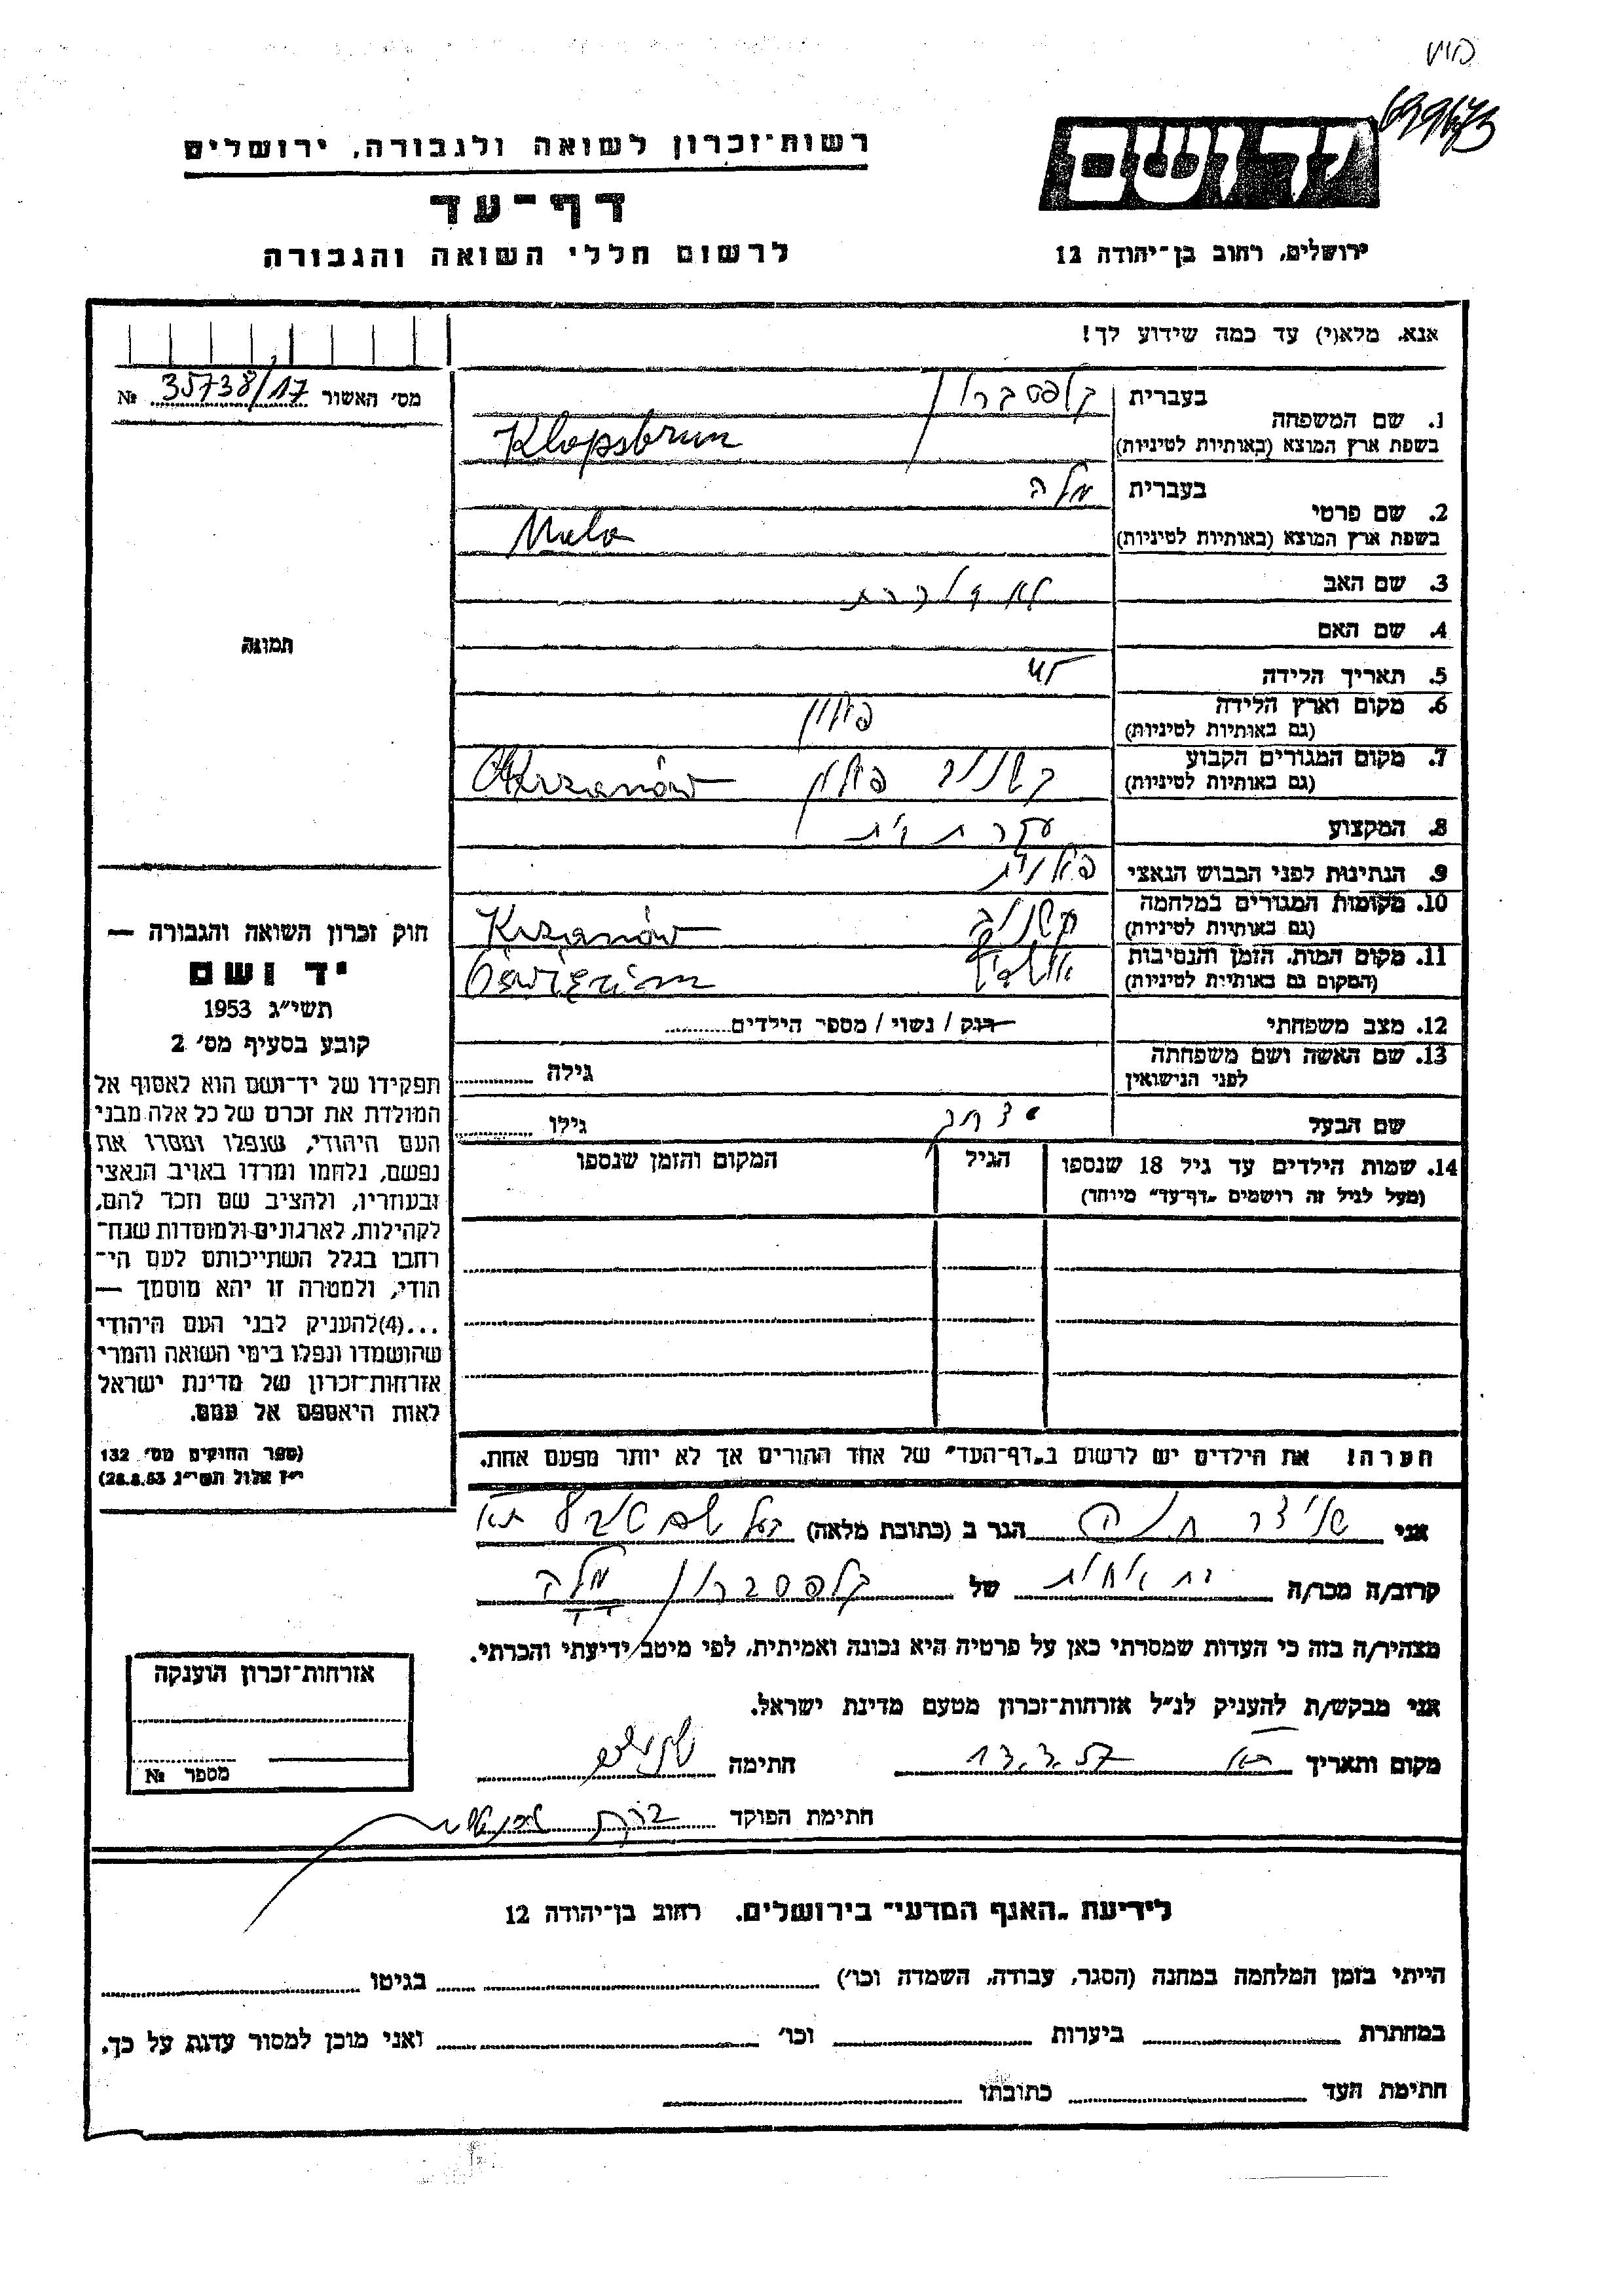 699673
רשות־זכרון לשואה ולגבורה, ירושלים
יד ושם
דף־עד
לרשום חללי השואה והגבורה
ירושלים, רחוב בן־יהודה 12
אנא, מלא(י) עד כמה שידוע לך!
מס׳ האשור № 35738/17
1. שם המשפחה בעברית קלפסברון
בשפת ארץ המוצא (באותיות לטיניות) Klopsbrun
2. שם פרטי בעברית מלה
בשפת ארץ המוצא (באותיות לטיניות) Mala
3. שם האב לא ידוע
4. שם האם
5. תאריך הלידה 45
6. מקום וארץ הלידה פולין
(גם באותיות לטיניות)
7. מקום המגורים הקבוע קשנוב פולין Chrzanów
(גם באותיות לטיניות)
8. המקצוע עקרת בית
9. הנתינות לפני הכבוש הנאצי פולנית
10. מקומות המגורים במלחמה קשנוב Krzanów
(גם באותיות לטיניות)
11. מקום המות, הזמן והנסיבות Oświęcim
(המקום גם באותיות לטיניות)
12. מצב משפחתי רוק / נשוי / מספר הילדים
13. שם האשה ושם משפחתה גילה
לפני הנישואין
שם הבעל גילו
14. שמות הילדים עד גיל 18 שנספו הגיל המקום והזמן שנספו
(מעל לגיל זה רושמים „דף־עד״ מיוחד)
הערה! את הילדים יש לרשום ב„דף־העד״ של אחד ההורים אך לא יותר מפעם אחת.
תמונה
חוק זכרון השואה והגבורה —
יד ושם
תשי״ג 1953
קובע בסעיף מס׳ 2
תפקידו של יד־ושם הוא לאסוף אל
המולדת את זכרם של כל אלה מבני
העם היהודי, שנפלו ומסרו את
נפשם, נלחמו ומרדו באויב הנאצי
ובעוזריו, ולהציב שם וזכר להם,
לקהילות, לארגונים ולמוסדות שנח־
רחבו בגלל השתייכותם לעם הי־
הודי, ולמטרה זו יהא מוסמך —
...(4)להעניק לבני העם היהודי
שהושמדו ונפלו בימי השואה והמרי
אזרחות־זכרון של מדינת ישראל
לאות היאספם אל עמם.
(ספר החוקים מס׳ 132
י״ז אלול תשי״ג 28.8.53)
אני הגר ב (כתובת מלאה)
קרוב/ה מכר/ה של קלפסברון מלה
מצהיר/ה בזה כי העדות שמסרתי כאן על פרטיה היא נכונה ואמיתית, לפי מיטב ידיעתי והכרתי.
אני מבקש/ת להעניק לנ״ל אזרחות־זכרון מטעם מדינת ישראל.
מקום ותאריך 13.3.57 חתימה
חתימת הפוקד
אזרחות־זכרון הוענקה
מספר №
לידיעת „האגף המדעי״ בירושלים, רחוב בן־יהודה 12
הייתי בזמן המלחמה במחנה (הסגר, עבודה, השמדה וכו׳) בגיטו
במחתרת ביערות וכו׳ ואני מוכן למסור עדות על כך.
חתימת העד כתובתו